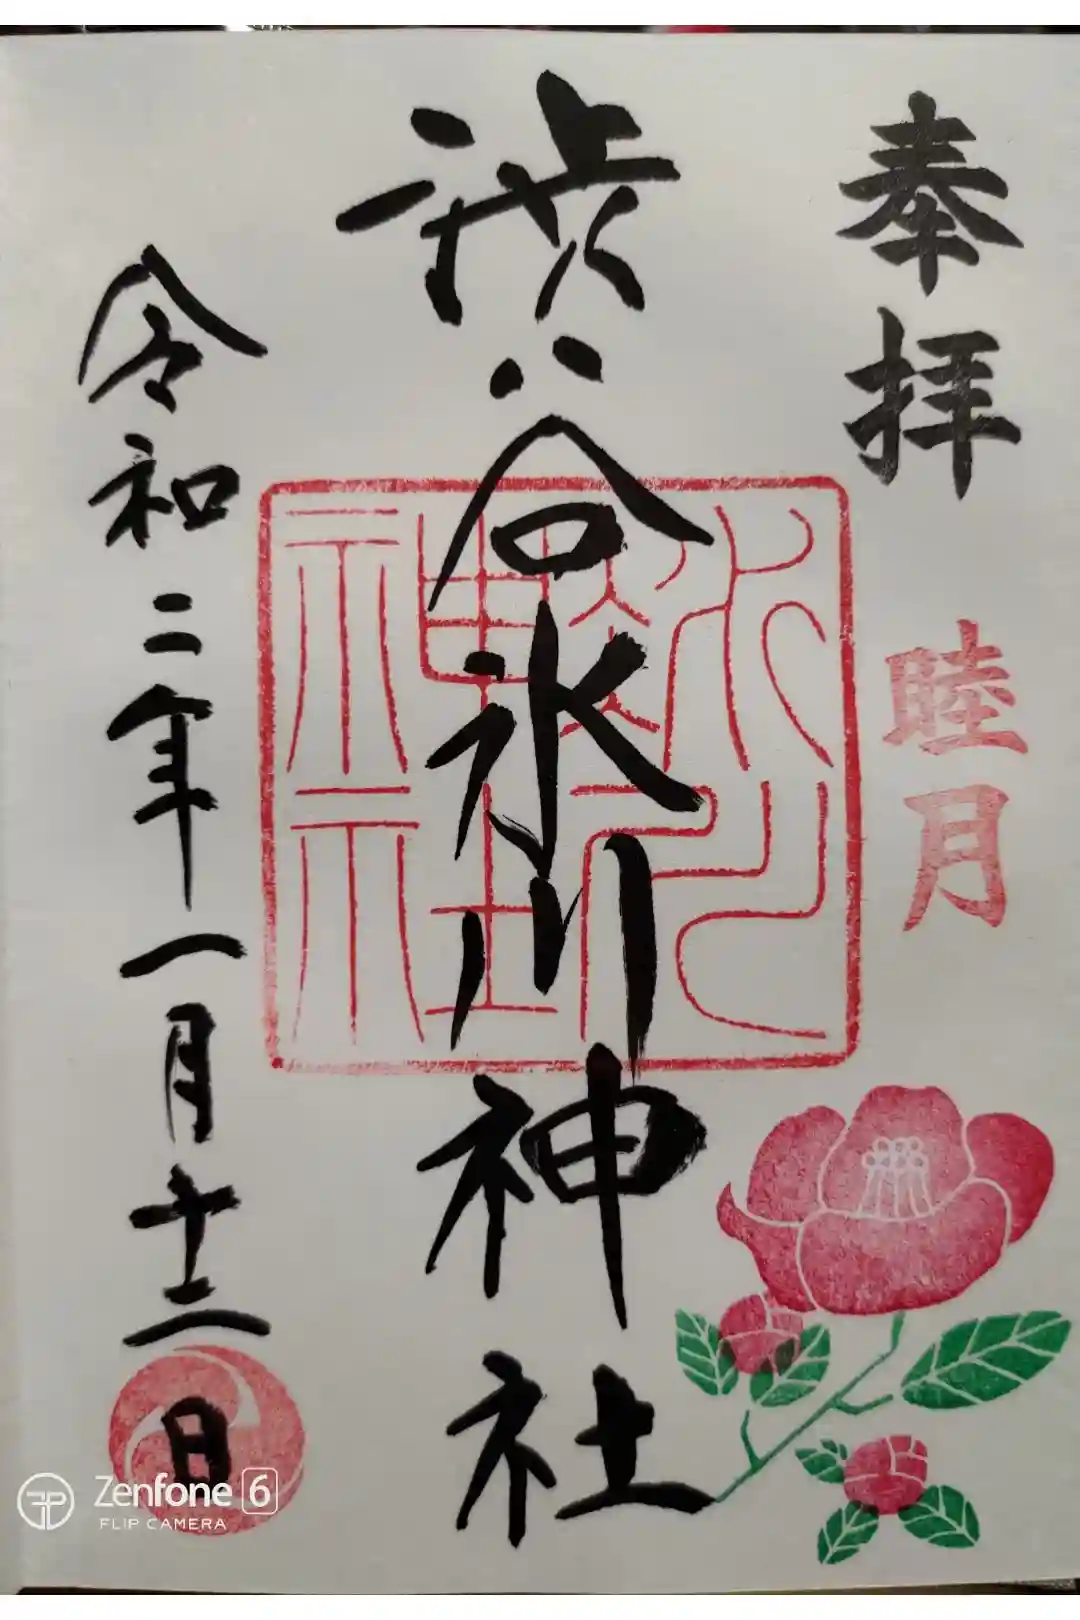 奉拝
睦月
渋谷氷川神社
氷川神社
令和二年一月十二日
Zenfone 6
FLIP CAMERA